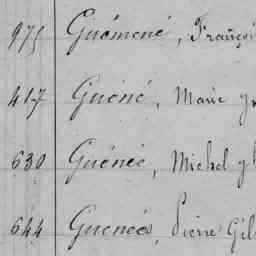 975 Guémené, Françoi
417 Guéné, Marie
630 Guénée, Michel
644 Guenées, Pierre Gil